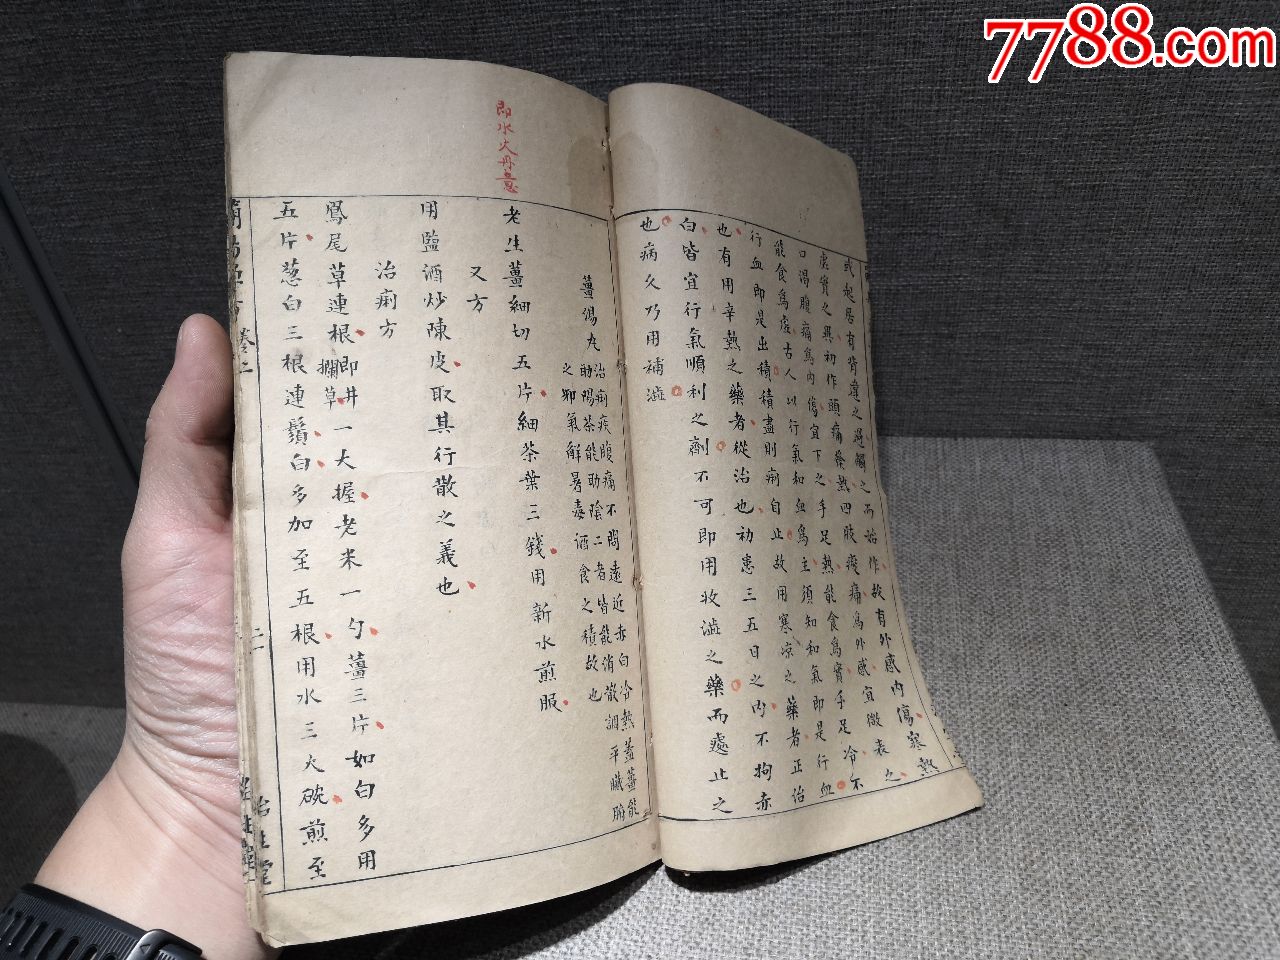 7788.com
或起居有背違之過觸之而始作故有外感內傷寒熱
虛實之異初作頭痛發熱四肢痠痛為外感宜微表之
口渴腹痛為內傷宜下之手足熱能食為實手足冷不
能食為虛古人以行氣和血為主須知和氣即是行血
行血即是出積積盡則痢自止故用寒涼之藥者正治
也有用辛熱之藥者從治也初患三五日之內不拘赤
白皆宜行氣順利之劑不可即用收澁之藥而遽止之
也病久乃用補澁
薑湯丸 治痢疾腹痛不問遠近赤白冷熱蓋薑能
助陽茶能助陰二者皆能消散調平臟腑
之卯氣解暑毒酒食之積故也
即水火丹意
老生薑細切五片細茶葉三錢用新水煎服
又方
用鹽酒炒陳皮取其行散之義也
治痢方
鳳尾草連根即井
攔草一大握老米一勺薑三片如白多用
五片葱白三根連鬚白多加至五根用水三大碗煎至
卷二
二
治生堂